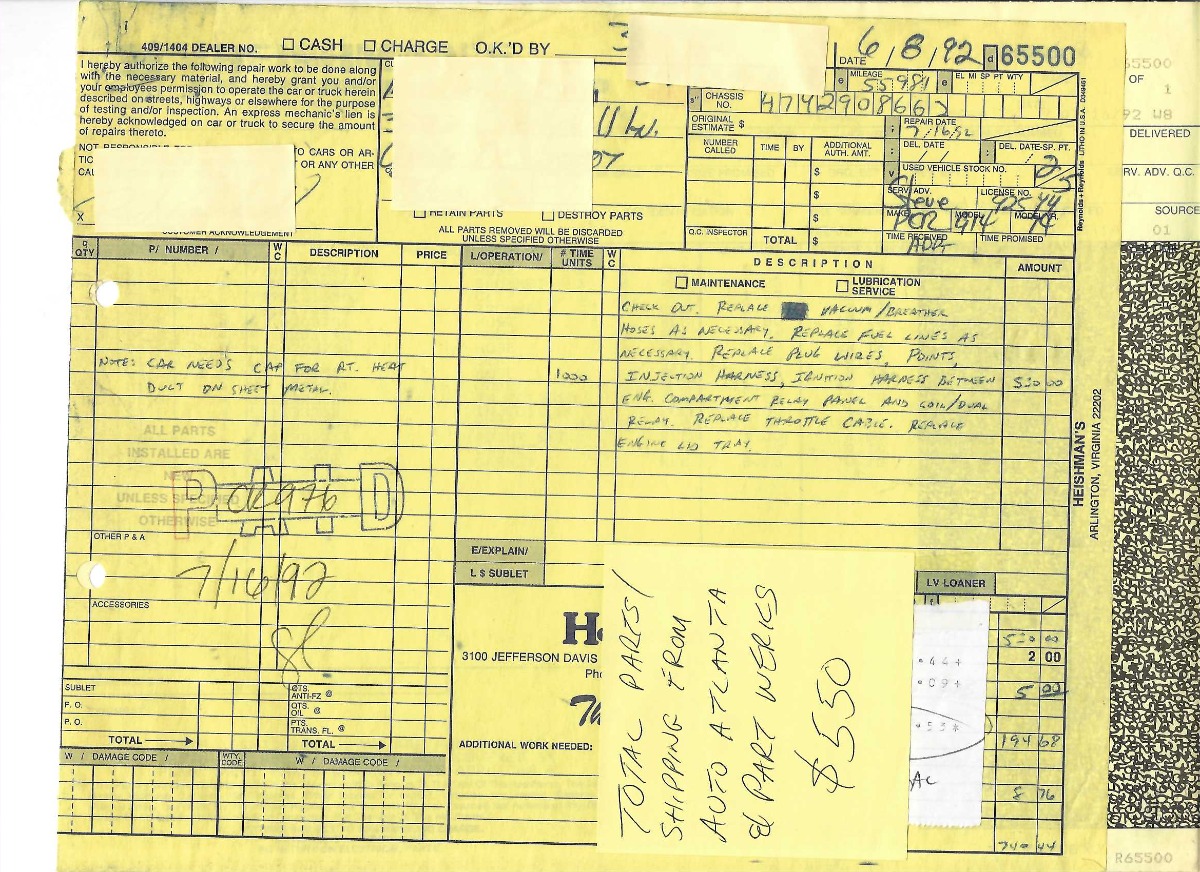 409/1404 DEALER NO. ☐ CASH ☐ CHARGE O.K.'D BY
DATE 6/8/92 65500
I hereby authorize the following repair work to be done along
with the necessary material, and hereby grant you and/or
your employees permission to operate the car or truck herein
described on streets, highways or elsewhere for the purpose
of testing and/or inspection. An express mechanic's lien is
hereby acknowledged on car or truck to secure the amount
of repairs thereto.
TO CARS OR AR-
OR ANY OTHER
X
CUSTOMER ACKNOWLEDGEMENT
RETAIN PARTS ☐ DESTROY PARTS
ALL PARTS REMOVED WILL BE DISCARDED
UNLESS SPECIFIED OTHERWISE
MILEAGE 55981 EL MI SP PT WTY
CHASSIS NO. 4742908662
ORIGINAL ESTIMATE $
REPAIR DATE 7/16/92
NUMBER CALLED TIME BY ADDITIONAL AUTH. AMT.
DEL. DATE DEL. DATE-SP. PT.
USED VEHICLE STOCK NO.
SERV. ADV. Steve LICENSE NO.
MAKE POR MODEL 914 MODEL YR. 74
Q.C. INSPECTOR TOTAL $
TIME RECEIVED TIME PROMISED
Reynolds + Reynolds LITHO IN U.S.A.
65500
OF
1
92 W8
DELIVERED
RV. ADV. Q.C.
SOURCE
01
QTY P/ NUMBER / W C DESCRIPTION PRICE L/OPERATION/ # TIME UNITS W C DESCRIPTION AMOUNT
☐ MAINTENANCE ☐ LUBRICATION SERVICE
CHECK OUT. REPLACE VACUUM/BREATHER
HOSES AS NECESSARY. REPLACE FUEL LINES AS
NECESSARY. REPLACE PLUG WIRES, POINTS,
1000 INJECTION HARNESS, IGNITION HARNESS BETWEEN 530 00
ENG. COMPARTMENT RELAY PANEL AND COIL/DUAL
RELAY. REPLACE THROTTLE CABLE. REPLACE
ENGINE LID TRAY.
NOTE: CAR NEEDS CAP FOR RT. HEAT
DUCT ON SHEET METAL.
ALL PARTS
INSTALLED ARE
NEW
UNLESS SPECIFIED
OTHERWISE
PAID
OTHER P & A
7/16/92
ACCESSORIES
SUBLET
P. O.
P. O.
TOTAL
QTS. ANTI-FZ @
QTS. OIL @
PTS. TRANS. FL. @
TOTAL
W / DAMAGE CODE / WTY. CODE W / DAMAGE CODE /
E/EXPLAIN/
L $ SUBLET
3100 JEFFERSON DAVIS
ADDITIONAL WORK NEEDED:
TOTAL PARTS/
SHIPPING FROM
AUTO ATLANTA
& PART WERKS
$550
LV LOANER
530 00
2 00
5 00
194 68
8 76
740 44
HEISHMAN'S
ARLINGTON, VIRGINIA 22202
R65500